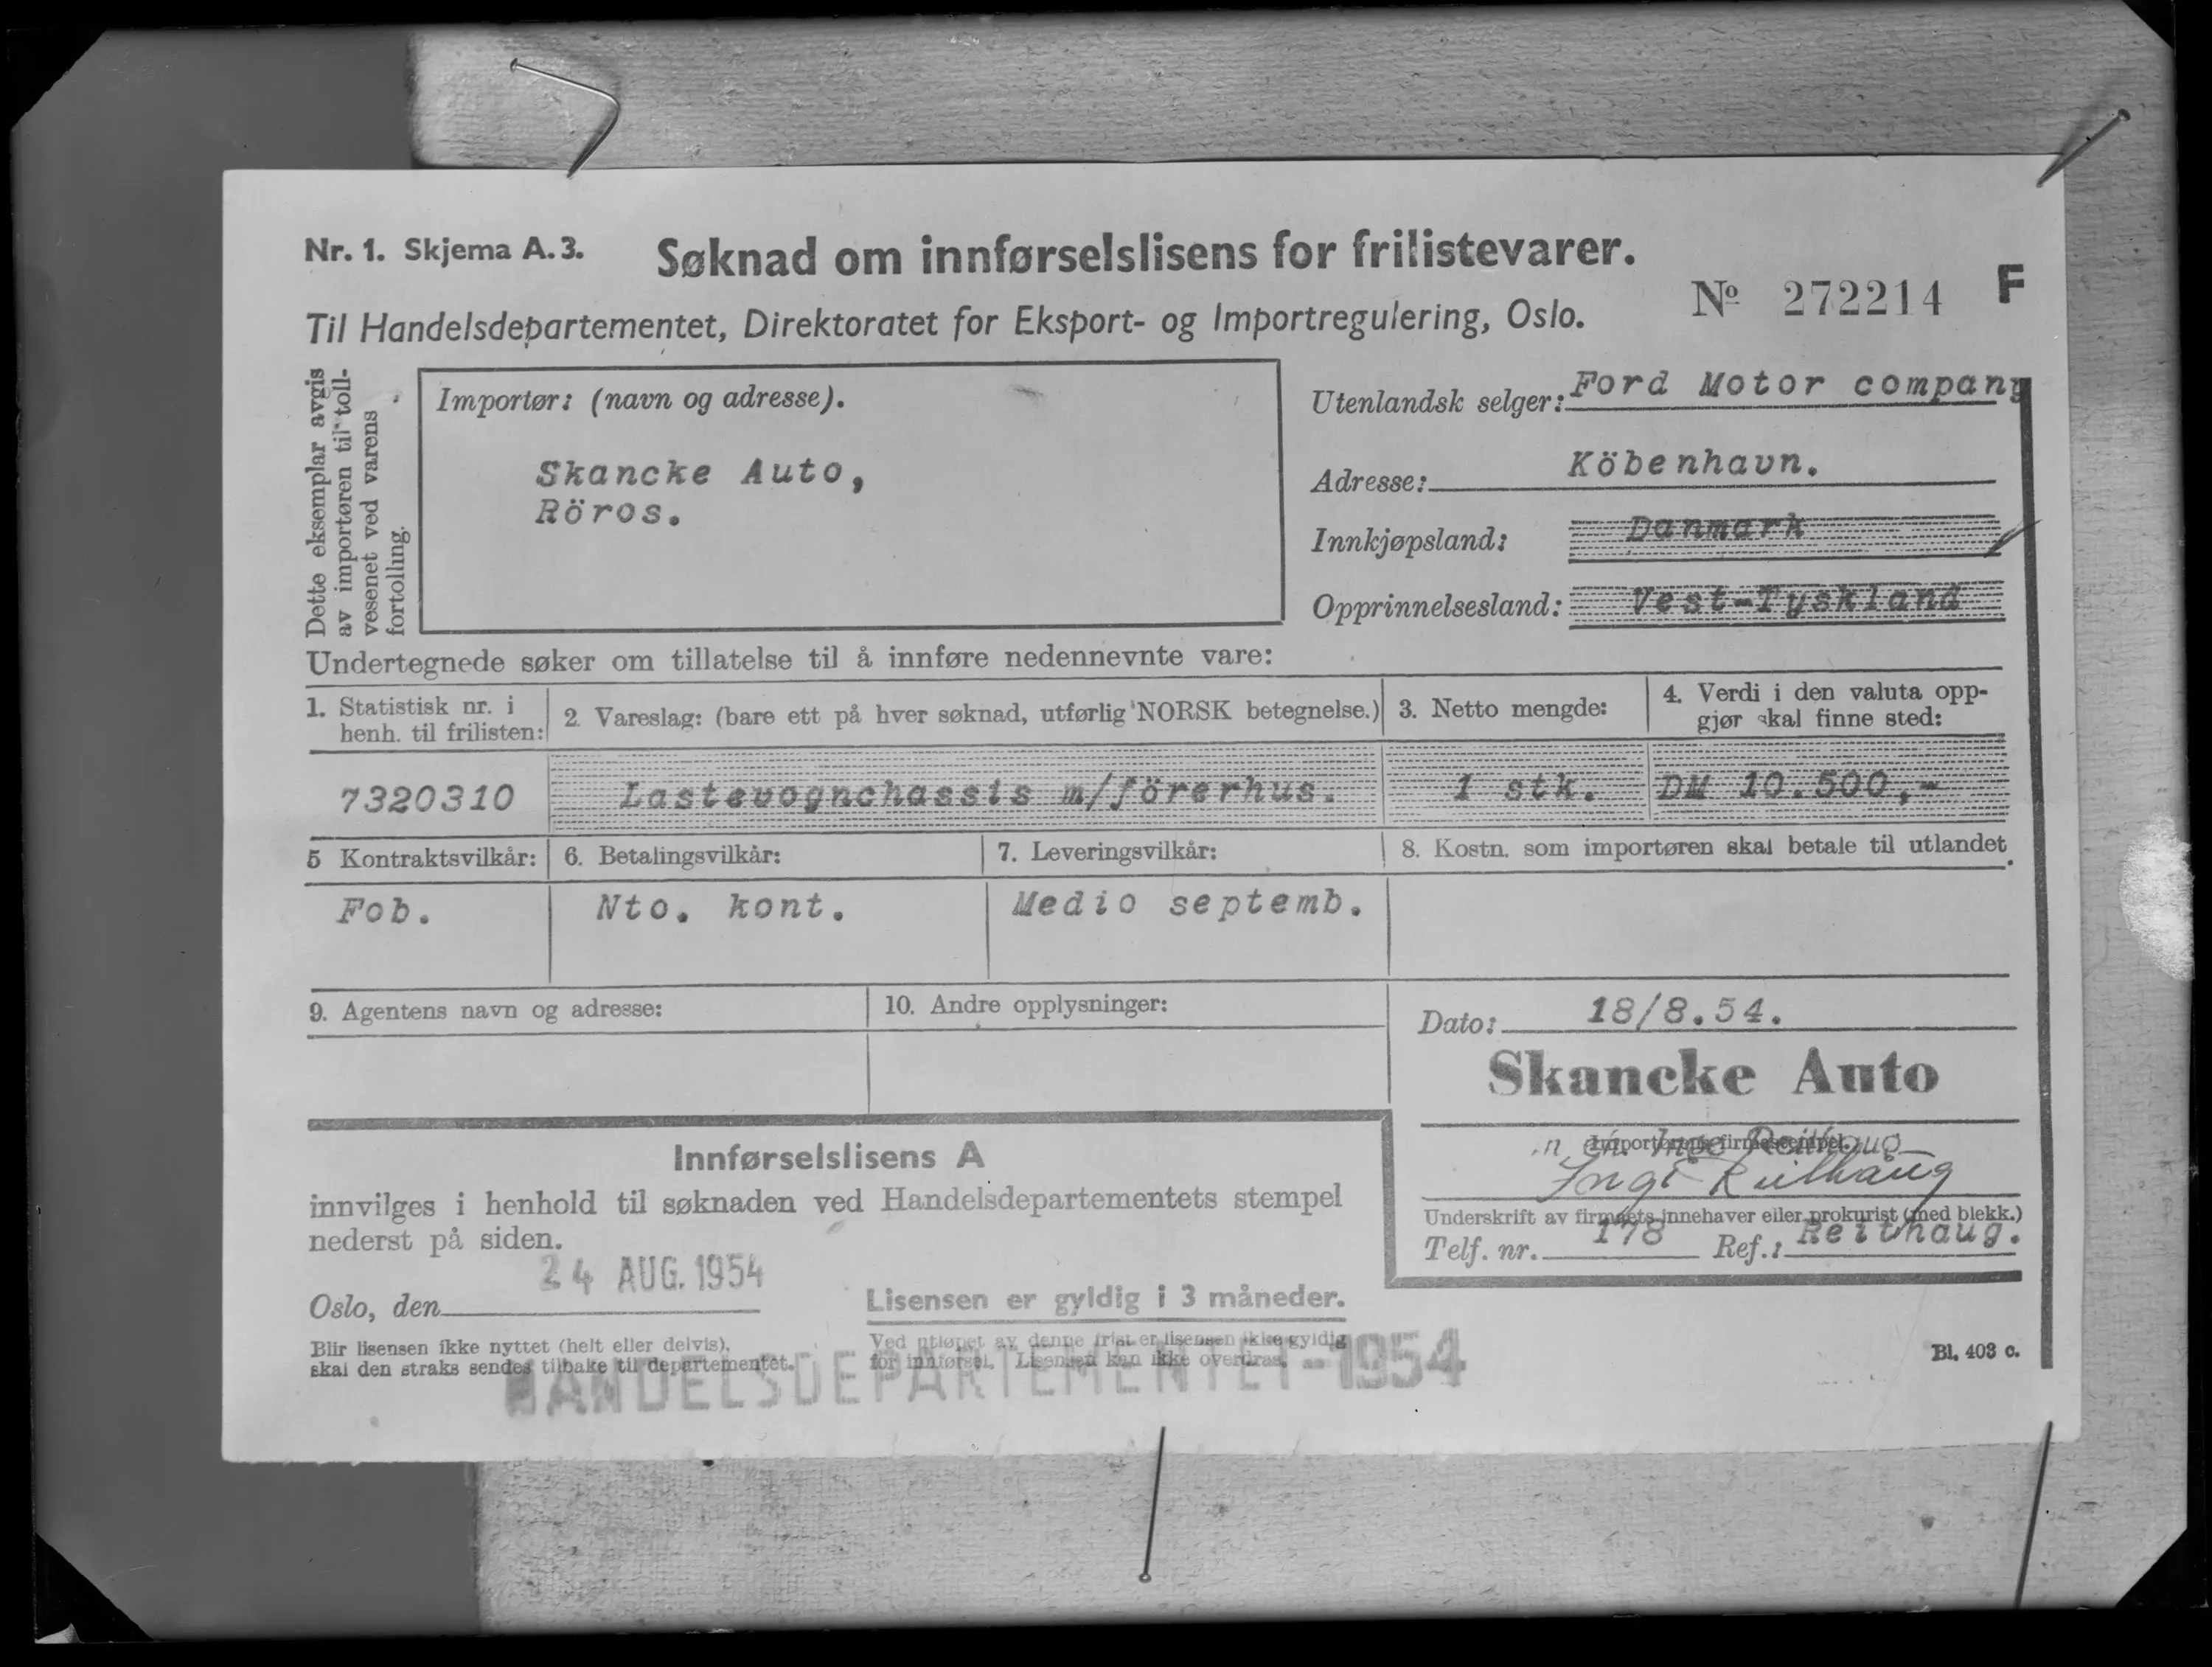 Nr. 1. Skjema A. 3. Søknad om innførselslisens for frilistevarer.
Nº 272214 F
Til Handelsdepartementet, Direktoratet for Eksport- og Importregulering, Oslo.
Dette eksemplar avgis
av importøren til toll-
vesenet ved varens
fortolling.
Importør: (navn og adresse).
Skancke Auto,
Röros.
Utenlandsk selger: Ford Motor company
Adresse: Köbenhavn.
Innkjøpsland: Danmark
Opprinnelsesland: Vest-Tyskland
Undertegnede søker om tillatelse til å innføre nedennevnte vare:
1. Statistisk nr. i
henh. til frilisten:
2. Vareslag: (bare ett på hver søknad, utførlig NORSK betegnelse.)
3. Netto mengde:
4. Verdi i den valuta opp-
gjør skal finne sted:
7320310 Lastevognchassis m/förerhus. 1 stk. DM 10.500,-
5 Kontraktsvilkår: 6. Betalingsvilkår: 7. Leveringsvilkår: 8. Kostn. som importøren skal betale til utlandet.
Fob. Nto. kont. Medio septemb.
9. Agentens navn og adresse: 10. Andre opplysninger:
Dato: 18/8.54.
Skancke Auto
Importørens firmastempel.
Inge Reithaug
Inge Reithaug
Underskrift av firmaets innehaver eller prokurist (med blekk.)
Telf. nr. 178 Ref.: Reithaug.
Innførselslisens A
innvilges i henhold til søknaden ved Handelsdepartementets stempel
nederst på siden.
Oslo, den 24 AUG. 1954
Blir lisensen ikke nyttet (helt eller delvis),
skal den straks sendes tilbake til departementet.
Lisensen er gyldig i 3 måneder.
Ved utløpet av denne frist er lisensen ikke gyldig
for innførsel. Lisensen kan ikke overdras.
HANDELSDEPARTEMENTET-1954
Bl. 403 c.